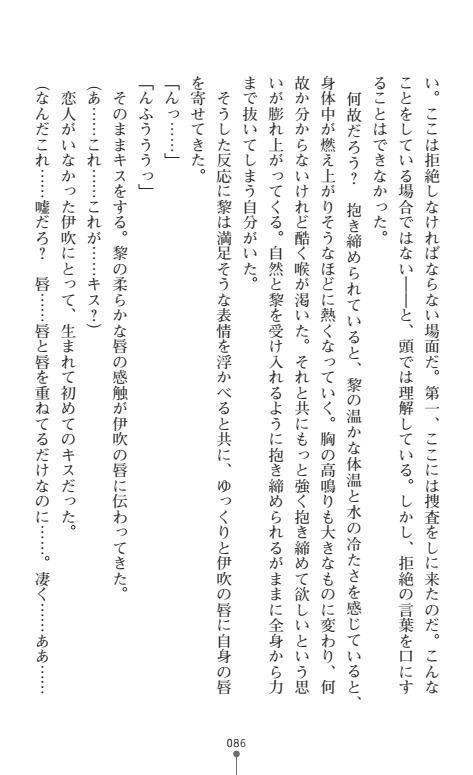 い。ここは拒絶しなければならない場面だ。第一、ここには捜査をしに来たのだ。こんな
ことをしている場合ではない――と、頭では理解している。しかし、拒絶の言葉を口にす
ることはできなかった。
何故だろう？　抱き締められていると、黎の温かな体温と水の冷たさを感じていると、
身体中が燃え上がりそうなほどに熱くなっていく。胸の高鳴りも大きなものに変わり、何
故か分からないけれど酷く喉が渇いた。それと共にもっと強く抱き締めて欲しいという思
いが膨れ上がってくる。自然と黎を受け入れるように抱き締められるがままに全身から力
まで抜いてしまう自分がいた。
そうした反応に黎は満足そうな表情を浮かべると共に、ゆっくりと伊吹の唇に自身の唇
を寄せてきた。
「んっ……」
「んふうううっ」
そのままキスをする。黎の柔らかな唇の感触が伊吹の唇に伝わってきた。
(あ……これ……これが……キス？)
恋人がいなかった伊吹にとって、生まれて初めてのキスだった。
(なんだこれ……嘘だろ？　唇……唇と唇を重ねてるだけなのに……。凄く……ああ……
086